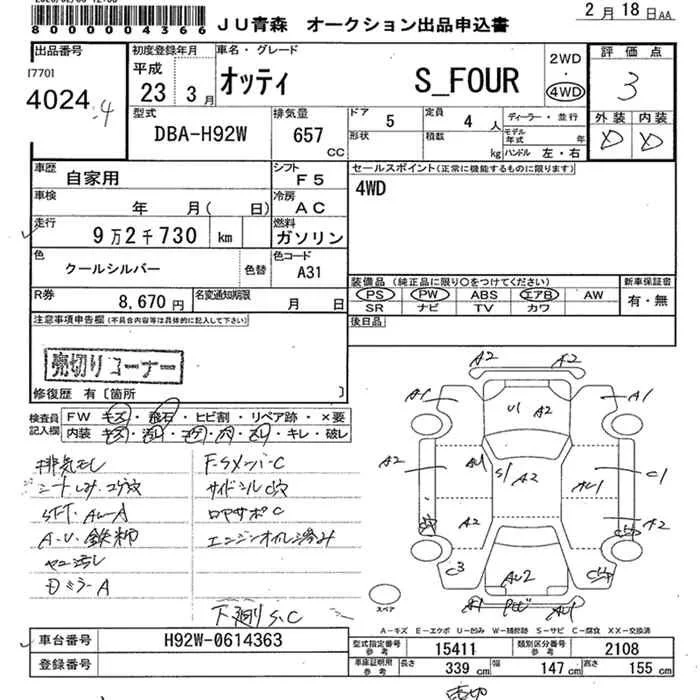 8000004366
JU青森 オークション出品申込書
2月18日AA
出品番号
[770]
4024
初度登録年月
平成
23 3月
車名・グレード
オッティ S_FOUR
2WD
・
4WD
評価点
3
外装 内装
D D
型式
DBA-H92W
排気量
657
CC
ドア
5
定員
4 人
形状
積数
kg
ディーラー・並行
モデル年式 年
ハンドル 左・右
車歴
自家用
シフト
F5
セールスポイント(正常に機能するものに限ります)
4WD
車検
年 月( 日)
冷房
AC
走行
9万2千730 km
燃料
ガソリン
色
クールシルバー
色替
色コード
A31
R券
8,670円
名変通知期限
月 日
装備品(純正品に限り○をつけてください)
PS PW ABS エアB AW
SR ナビ TV カワ
新車保証書
有・無
後日品
注意事項申告欄(不具合内容等は具体的に記入して下さい)
売切りコーナー
修復歴 有〔箇所 〕
検査員
記入欄
FW キズ・飛石・ヒビ割・リペア跡・×要
内装 キレ・破レ
F-SメンバーC
サイドシルC穴
ロアサポC
エンジンオイル滲み
DミラーA
下廻りS.C
A2
A2
A1
A1
U1
A2
A2
S1
A2
C1
A2
A2
C3
スペア
A-キズ E-エクボ U-凹み W-補修跡 S-サビ C-腐食 XX-交換済
車台番号
H92W-0614363
登録番号
型式指定番号
参考
15411
類別区分番号
参考
2108
車庫証明用
参考
長さ 339 cm
幅 147 cm
高さ 155 cm